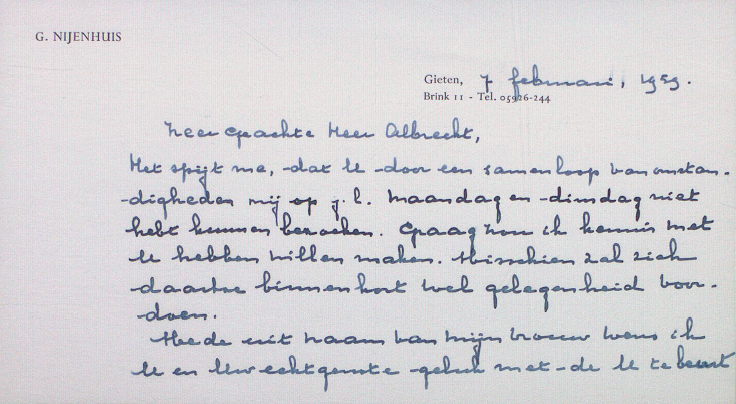 G. NIJENHUIS
Gieten, 7 februari, 1959.
Brink 11 - Tel. 05926-244
Zeer geachte Heer Albrecht,
Het spijt me, dat U door een samenloop van omstan-
digheden mij op j.l. maandag en dinsdag niet
hebt kunnen bezoeken. Graag zou ik kennis met
U hebben willen maken. Misschien zal zich
daartoe binnenkort wel gelegenheid voor-
doen.
Mede uit naam van mijn vrouw wens ik
U en Uw echtgenote geluk met de U te beurt